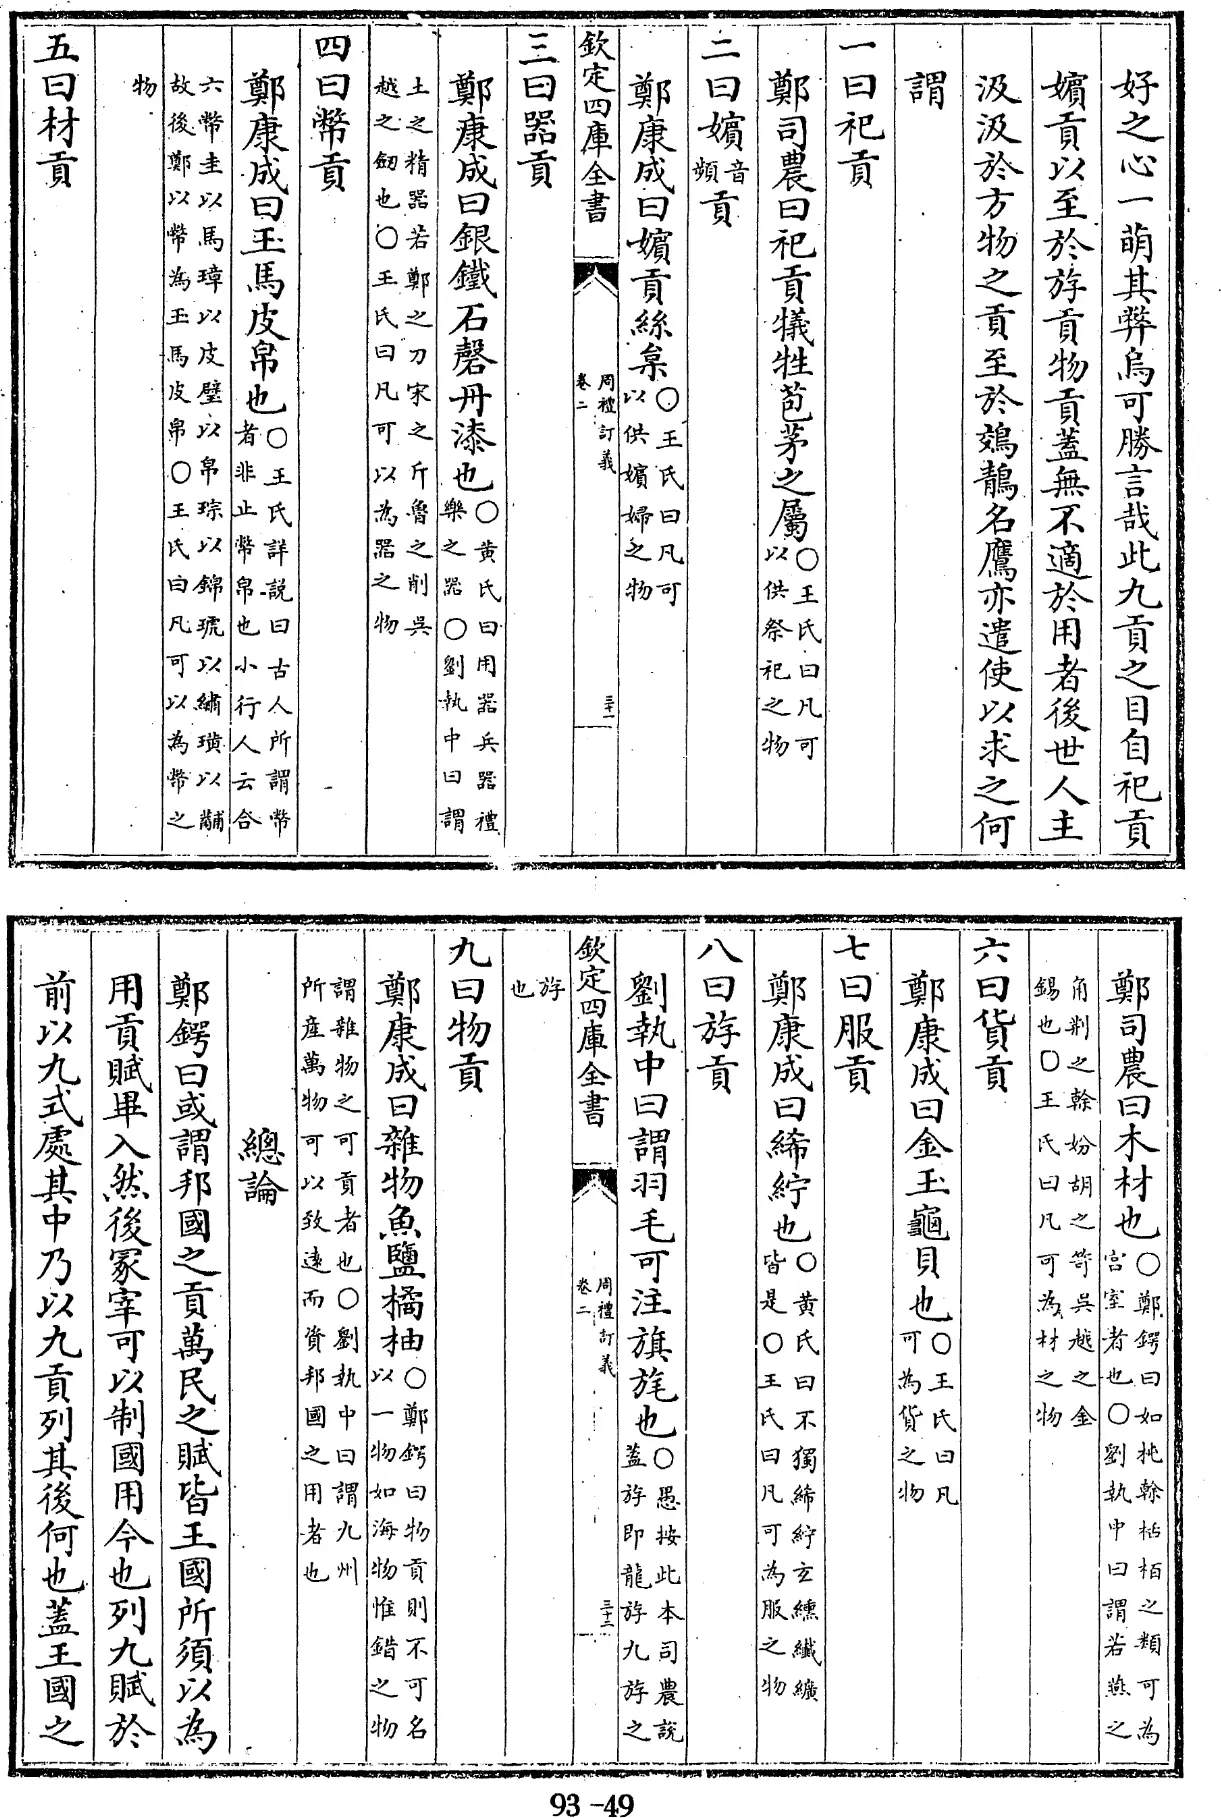 好之心一萌其弊烏可勝言哉此九貢之目自祀貢
嬪貢以至於斿貢物貢蓋無不適於用者後世人主
汲汲於方物之貢至於鵁鶄名鷹亦遣使以求之何
謂
一曰祀貢
鄭司農曰祀貢犧牲苞茅之屬○王氏曰凡可
以供祭祀之物
二曰嬪音
頻貢
鄭康成曰嬪貢絲枲○王氏曰凡可
以供嬪婦之物
欽定四庫全書
周禮訂義
卷二
三十一
三曰器貢
鄭康成曰銀鐵石磬丹漆也○黃氏曰用器兵器禮
樂之器○劉執中曰謂
土之精器若鄭之刀宋之斤魯之削吳
越之劒也○王氏曰凡可以為器之物
四曰幣貢
鄭康成曰玉馬皮帛也○王氏詳説曰古人所謂幣
者非止幣帛也小行人云合
六幣圭以馬璋以皮璧以帛琮以錦琥以繡璜以黼
故後鄭以幣為玉馬皮帛○王氏曰凡可以為幣之
物
五曰材貢
鄭司農曰木材也○鄭鍔曰如杶榦栝柏之類可為
宫室者也○劉執中曰謂若燕之
角荆之榦妢胡之笴吳越之金
錫也○王氏曰凡可為材之物
六曰貨貢
鄭康成曰金玉龜貝也○王氏曰凡
可為貨之物
七曰服貢
鄭康成曰絺紵也○黃氏曰不獨絺紵玄纁纖纊
皆是○王氏曰凡可為服之物
八曰斿貢
劉執中曰謂羽毛可注旗旄也○愚按此本司農説
蓋斿即龍斿九斿之
欽定四庫全書
周禮訂義
卷二
三十二
斿
也
九曰物貢
鄭康成曰雜物魚鹽橘柚○鄭鍔曰物貢則不可名
以一物如海物惟錯之物
謂雜物之可貢者也○劉執中曰謂九州
所產萬物可以致遠而資邦國之用者也
總論
鄭鍔曰或謂邦國之貢萬民之賦皆王國所須以為
用貢賦畢入然後冢宰可以制國用今也列九賦於
前以九式處其中乃以九貢列其後何也蓋王國之
93-49